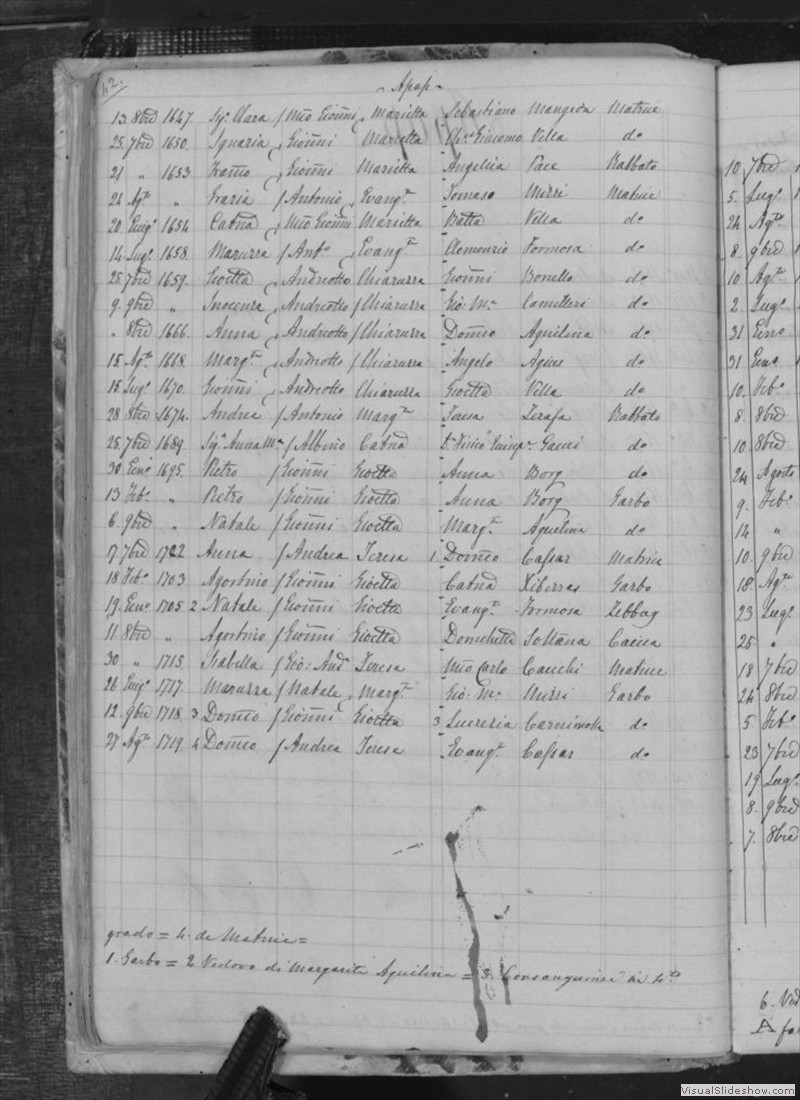 42.
~ Apap ~
13. 8bre 1647. Sr. Clara / Mro Gioñi, Marietta Sebastiano Mangion Matrice
25. 7bre 1650. Ignazia, Gioñi Marietta Chco Giacomo Vella do
21 „ 1653 Gioñi Marietta Angelica Pace Rabbato
24 Agto „ Grazia / Antonio, Evanga Tomaso Mizzi Matrice
20 Giugo 1654 Catna, Mro Gioñi Marietta Batta Villa do
14 Lugo 1658. Maruzza / Anto, Evanga Clemenzio Formosa do
25 7bre 1659. Gioetta, Andreotto / Chiaruzza Gioñi Bonello do
9. 9bre „ Inocenza, Andreotto / Chiaruzza Gio: Ma Camilleri do
„ 8bre 1666. Anna, Andreotto / Chiaruzza Domco Aquilina do
15 Agto 1668. Marga, Andreotto / Chiaruzza Angelo Agius do
15 Lugo 1670. Gioñi, Andreotto Chiaruzza Gioetta Villa do
28 8bre 1674. Andrea / Antonio Marga Teresa Zerafa Rabbato
25. 7bre 1689. Sra Anna Ma / Albino Catna Gauci do
30 Geno 1695. Pietro / Gioñi Gioetta Anna Borg do
13 Febo „ Pietro / Gioñi Gioetta Anna Borg Garbo
6. 9bre „ Natale / Gioñi Gioetta Marga Aquilina do
17 7bre 1702 Anna / Andrea Teresa 1. Domco Cassar Matrice
18 Febo 1703 Agostino / Gioñi Gioetta Catna Xiberras Garbo
19. Geno 1705 2 Natale / Gioñi Gioetta Evanga Formosa Zebbug
11. 8bre „ Agostino / Gioñi Gioetta Domchetta Soltana Caccia
30 „ 1715 Isabella / Gio: Anda Teresa Mro Carlo Cauchi Matrice
26 Giugo 1717. Maruzza / Natale, Marga Gio: Ma Mizzi Garbo
12. 9bre 1718 3 Domco / Gioñi Gioetta 3 Lucrezia Carnimolla do
27 Agto 1719 4 Domco / Andrea Teresa Evanga Cassar do
grado = 4. de Matrice =
1. Garbo = 2 Vedovo di Margarita Aquilina = 3. Consanguinei in 4to
10 7bre
5. Lugo
24 Agto
8. 9bre
10 Agto
2. Lugo
31 Geno
31 Geno
10. Febo
8. 8bre
10 8bre
24 Agosto
9. Febo
14 „
10. 9bre
18. Agto
23 Lugo
25 „
18 7bre
24 8bre
5. Febo
23 7bre
19 Lugo
8. 9bre
7. 8bre
6. Ved
VisualSlideshow.com